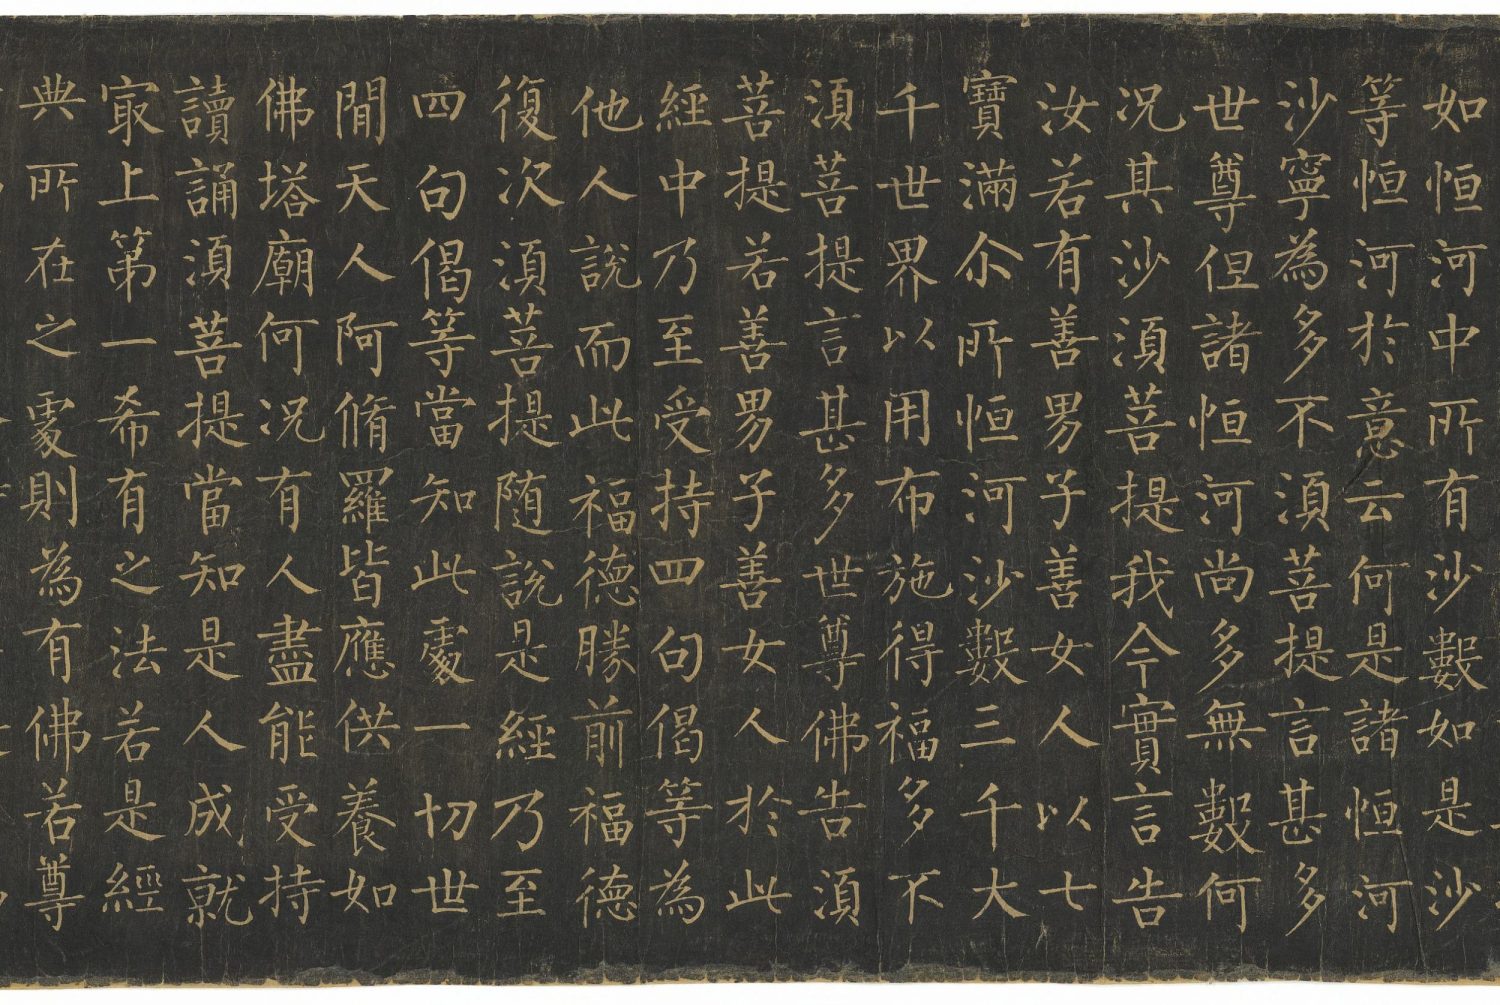 如恒河中所有沙數如是沙
等恒河於意云何是諸恒河
沙寧為多不須菩提言甚多
世尊但諸恒河尚多無數何
況其沙須菩提我今實言告
汝若有善男子善女人以七
寶滿尒所恒河沙數三千大
千世界以用布施得福多不
須菩提言甚多世尊佛告須
菩提若善男子善女人於此
經中乃至受持四句偈等為
他人說而此福德勝前福德
復次須菩提随說是經乃至
四句偈等當知此處一切世
間天人阿脩羅皆應供養如
佛塔廟何況有人盡能受持
讀誦須菩提當知是人成就
冣上第一希有之法若是經
典所在之處則為有佛若尊